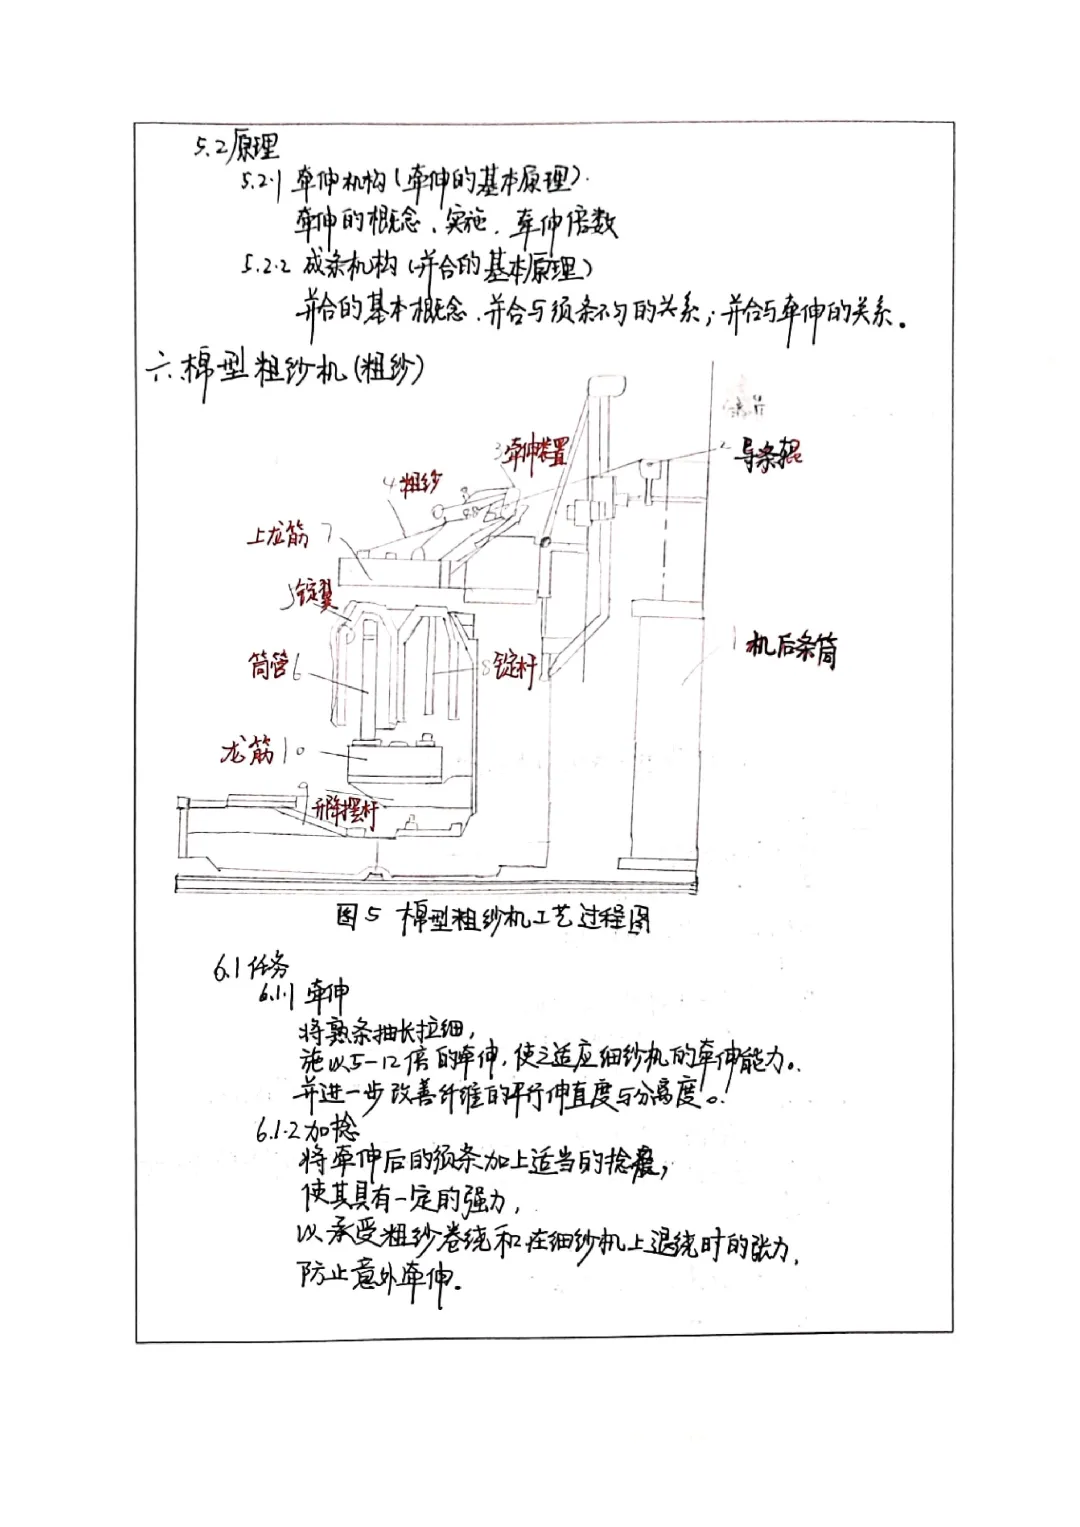 5.2原理
5.2.1 牵伸机构(牵伸的基本原理).
牵伸的概念、实施、牵伸倍数
5.2.2 成条机构(并合的基本原理)
并合的基本概念、并合与须条不匀的关系;并合与牵伸的关系。
六、棉型粗纱机(粗纱)
2 导条辊
3 牵伸装置
4 粗纱
上龙筋 7
5 锭翼
1 机后条筒
筒管 6
8 锭杆
龙筋 10
9 升降摆杆
图5 棉型粗纱机工艺过程图
6.1 任务
6.1.1 牵伸
将熟条抽长拉细,
施以5-12倍的牵伸,使之适应细纱机的牵伸能力。
并进一步改善纤维的平行伸直度与分离度。
6.1.2 加捻
将牵伸后的须条加上适当的捻度,
使其具有一定的强力,
以承受粗纱卷绕和在细纱机上退绕时的张力,
防止意外牵伸.